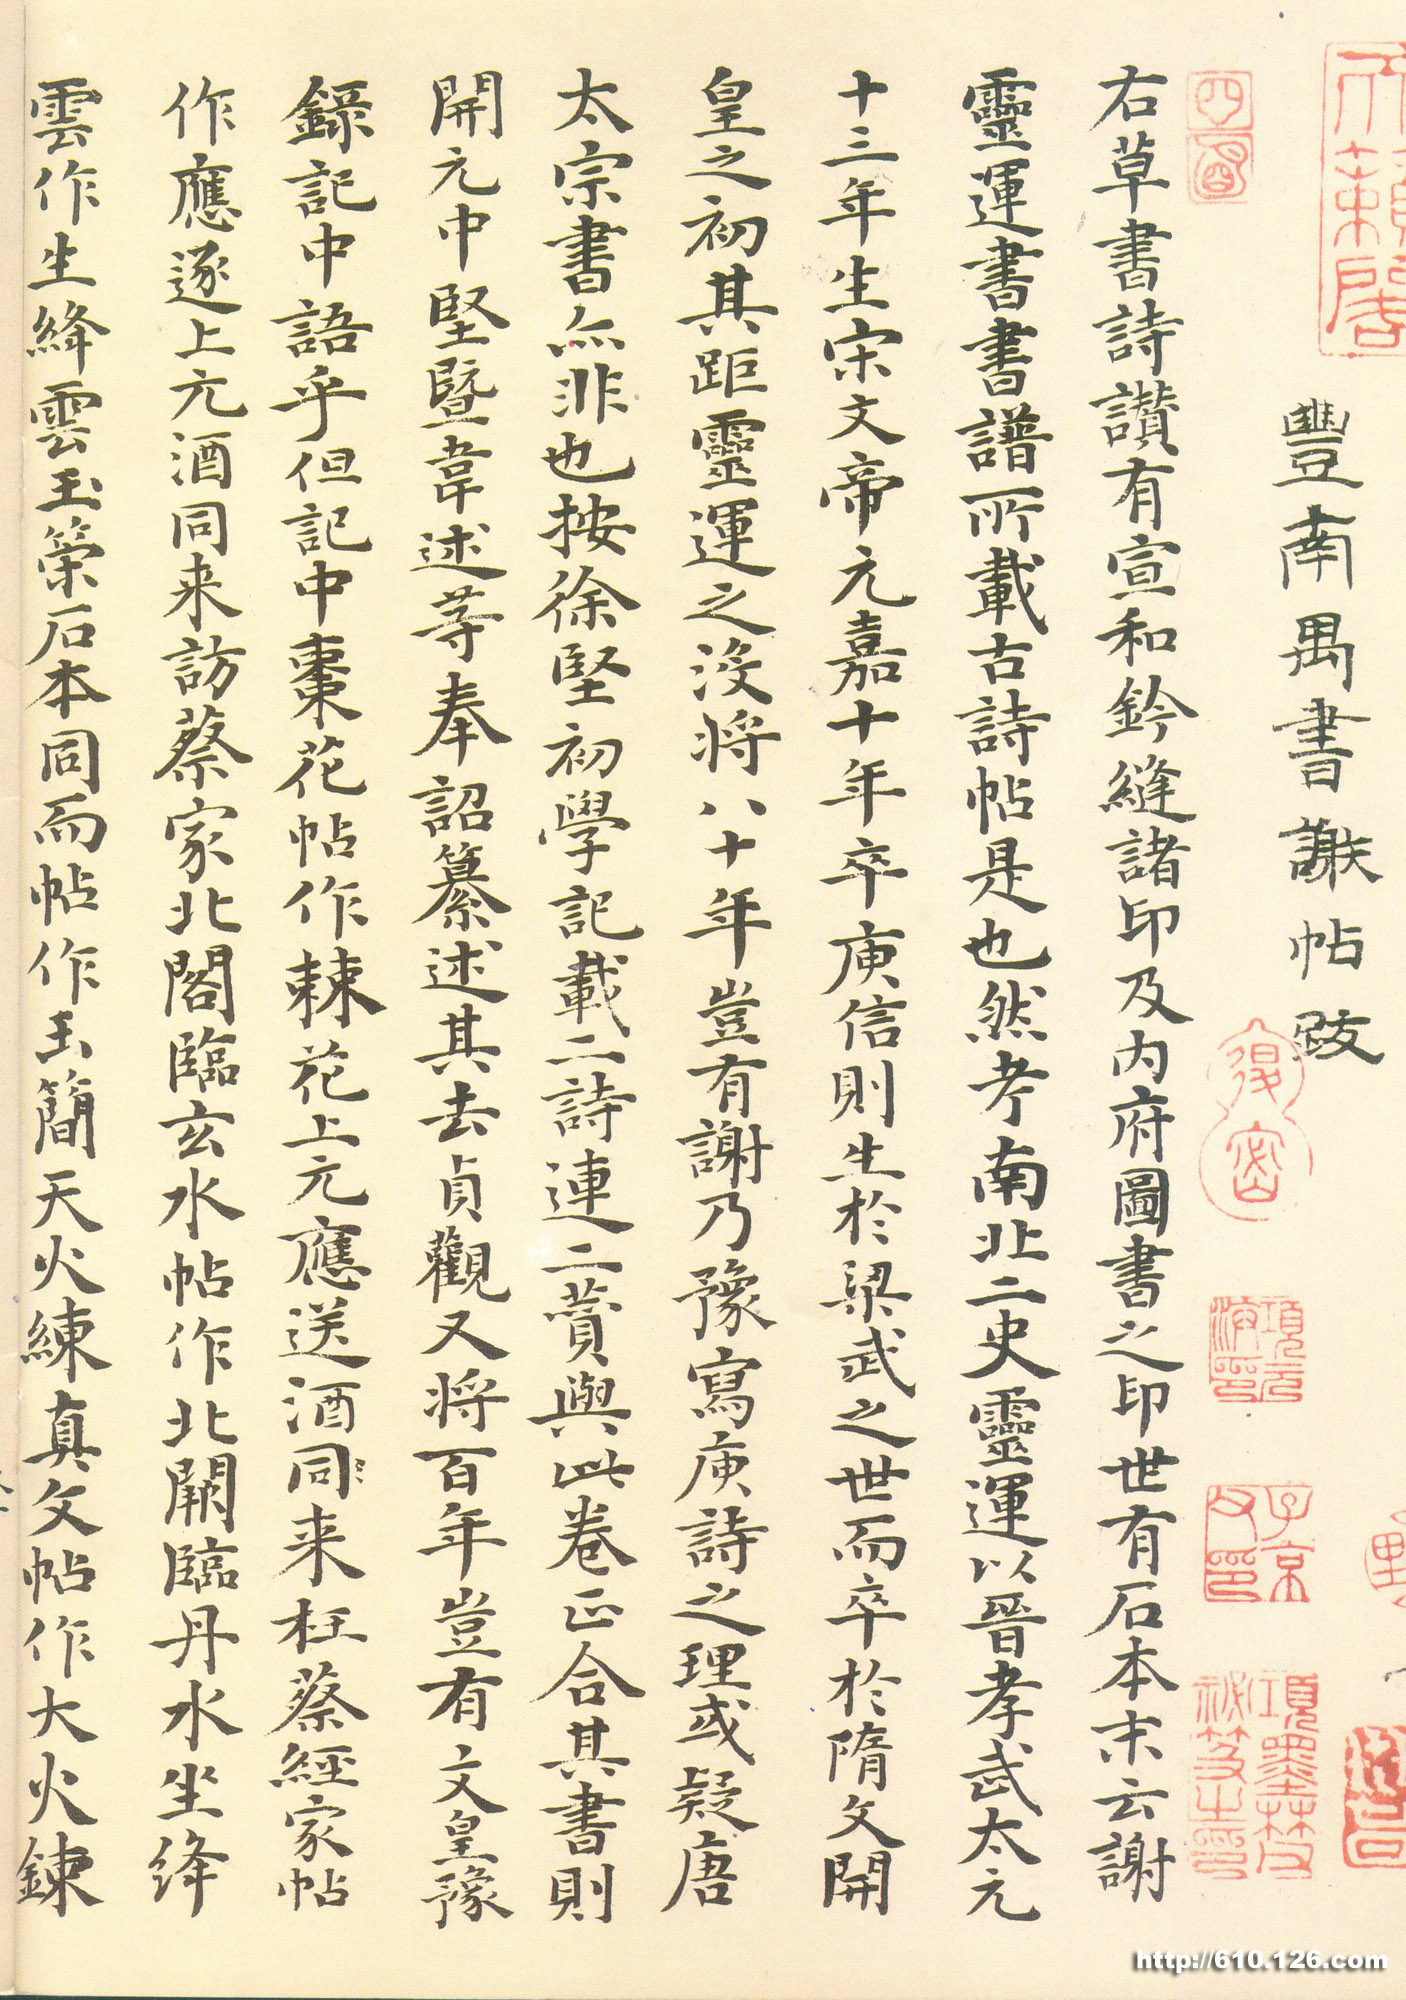 天籟閣
豐南禺書謝帖跋
四明
項元
子京
項墨林父
祕笈之印
右草書詩讃有宣和鈐縫諸印及内府圖書之印世有石本末云謝
靈運書書譜所載古詩帖是也然考南北二史靈運以晉孝武太元
十三年生宋文帝元嘉十年卒庾信則生於梁武之世而卒於隋文開
皇之初其距靈運之没将八十年豈有謝乃豫寫庾詩之理或疑唐
太宗書亦非也按徐堅初學記載二詩連二賛與此卷正合其書則
開元中堅暨韋述等奉詔纂述其去貞觀又将百年豈有文皇豫
録記中語乎但記中棗花帖作棘花上元應送酒同来枉蔡經家帖
作應逐上元酒同来訪蔡家北閣臨玄水帖作北闕臨丹水坐絳
雲作生絳雲玉策石本同而帖作玉簡天火練真文帖作大火鍊
http://610.126.com